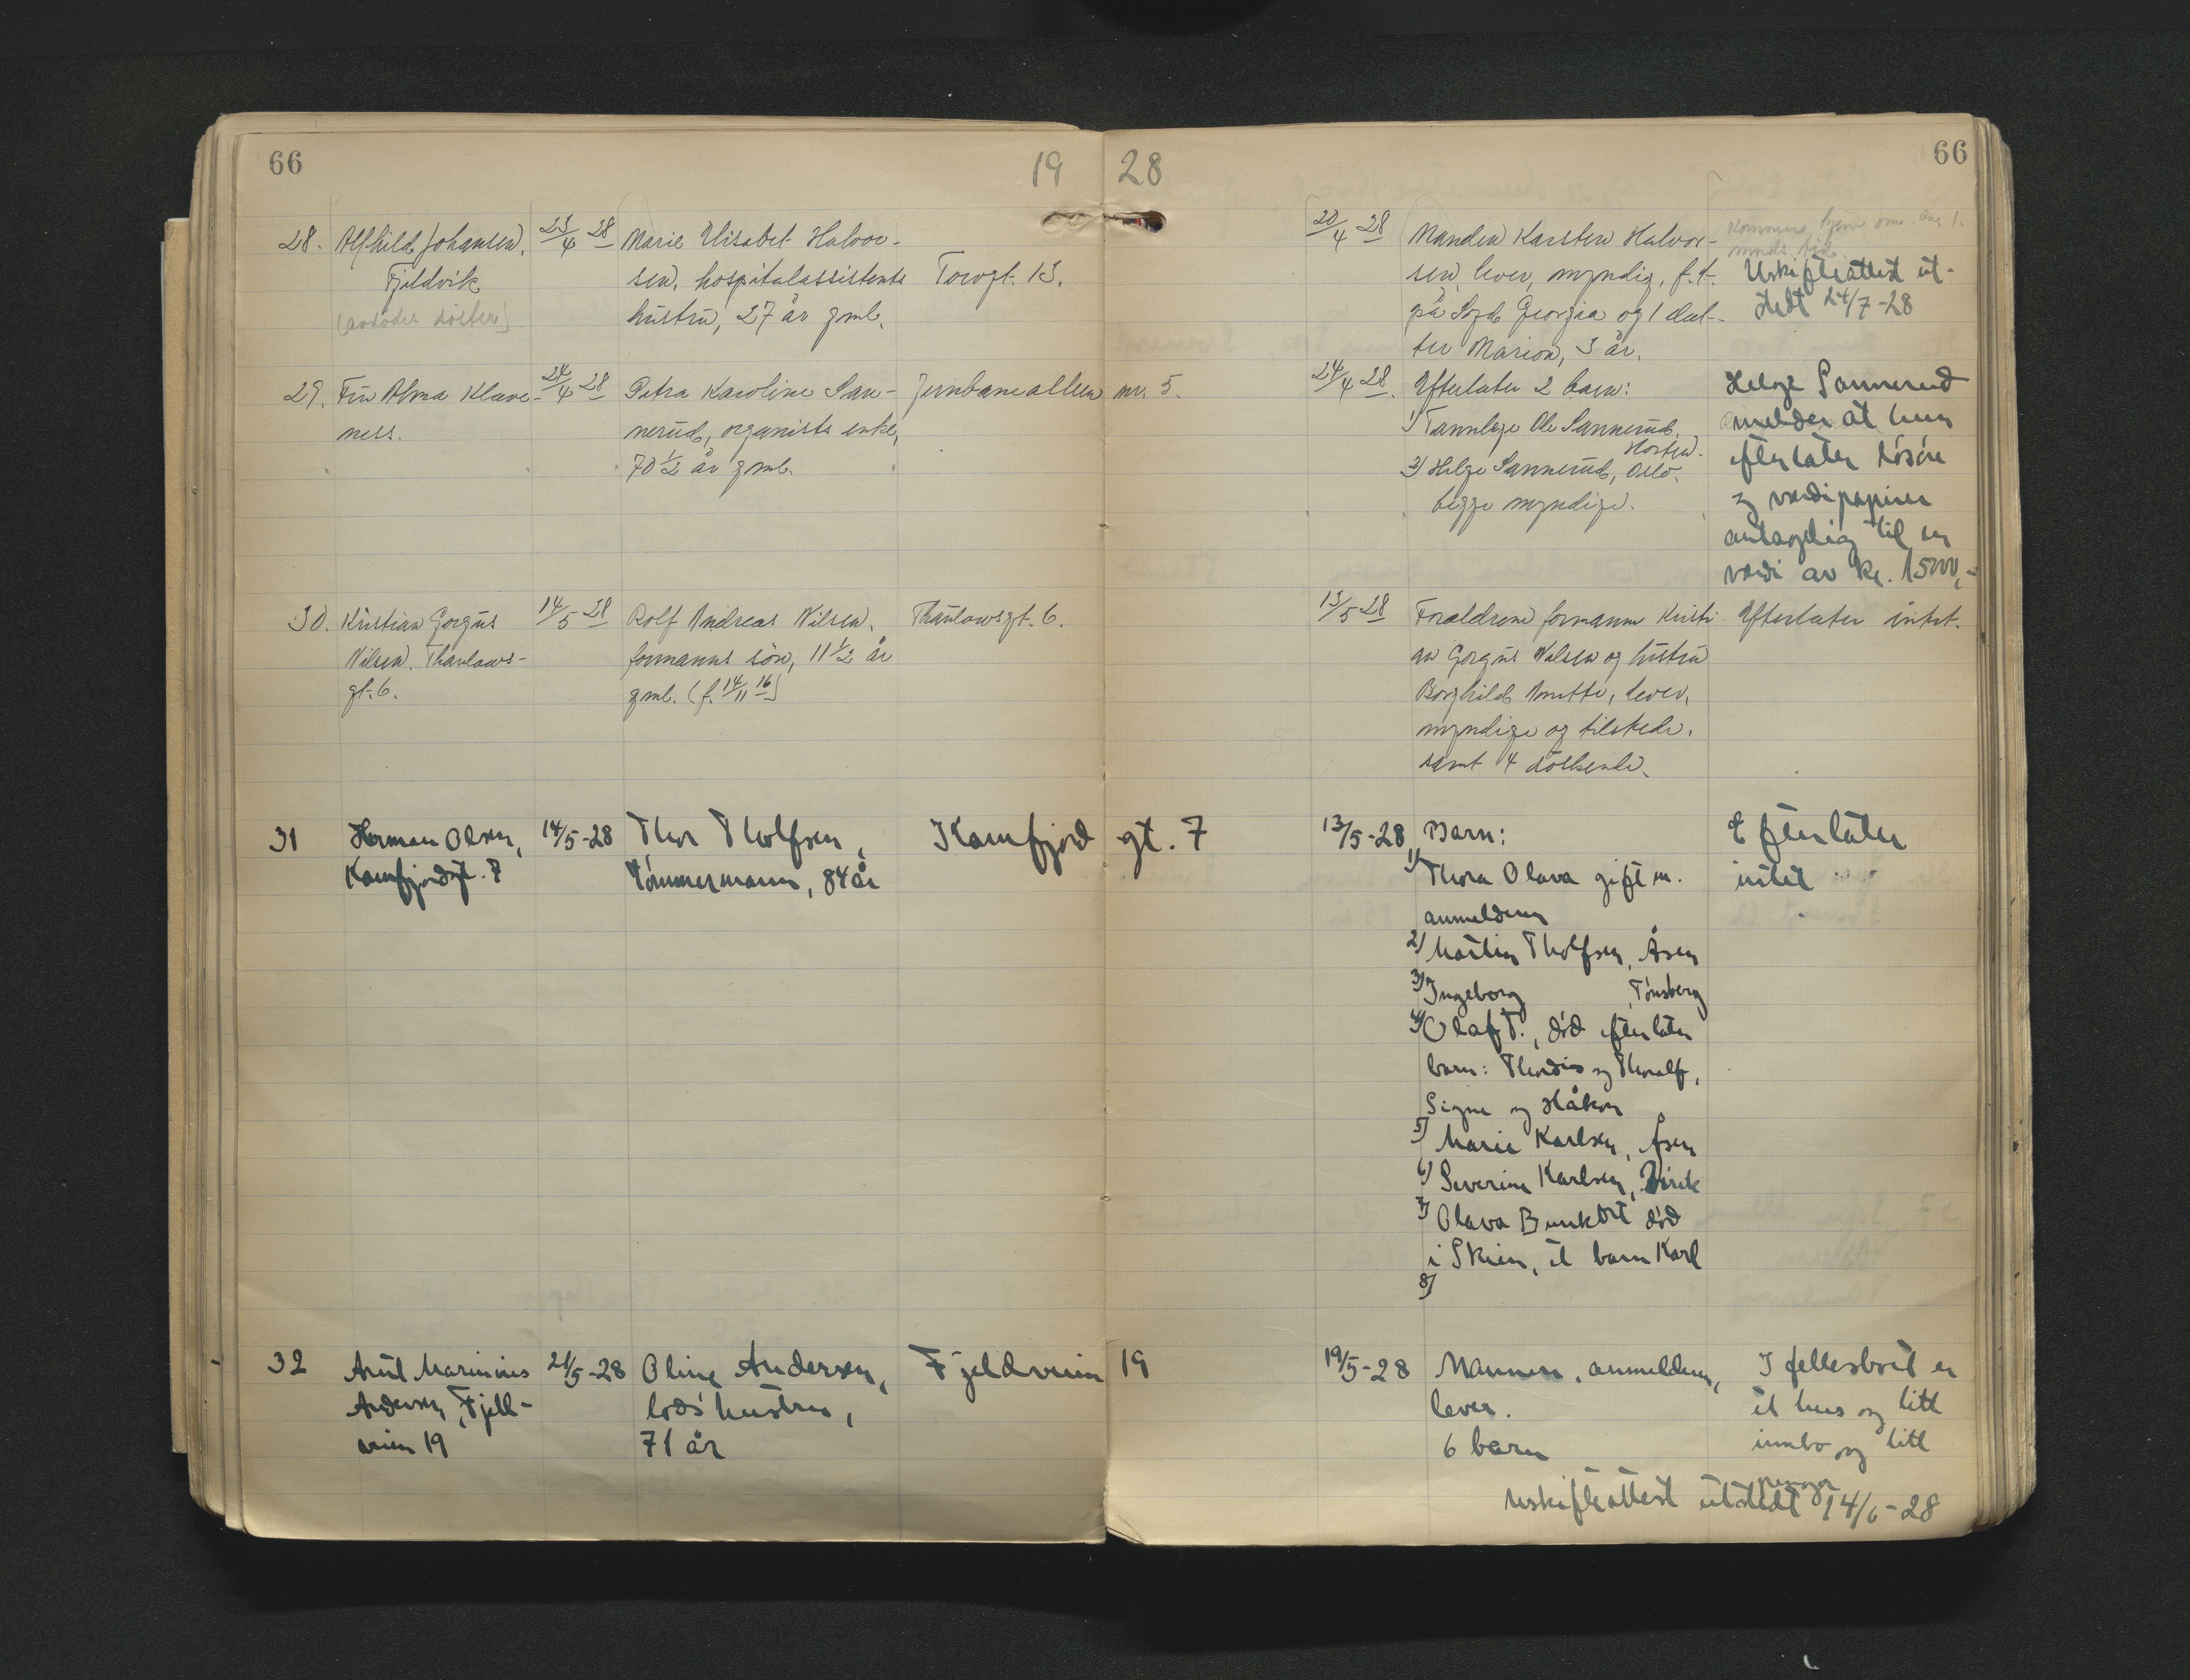 66
19 28
66
28. Alfhild Johansen, 23/4 28 Marie Elisabet Halvor-
Fjeldvik sen, hospitalassistents Torvgt. 13.
(avdødes søster) hustru, 27 år gml.
20/4 28 Manden Karsten Halvor-
sen, lever, myndig, f.t.
på Syd Georgia og 1 dat-
ter Marion, 3 år.
Kommer hjem om ca. 1.
mnds. tid.
Uskifteattest ut-
stedt 24/7-28
29. Fru Alma Klave- 24/4 28 Petra Karoline San- Jernbanealleen nr. 5.
ness. nerud, organists enke,
70 1/2 år gml.
24/4 28. Efterlater 2 barn:
1) Tannlæge Ole Sannerud,
Horten.
2) Helge Sannerud, Oslo.
begge myndige.
Helge Sannerud
melder at hun
efterlater løsøre
og verdipapirer
antagelig til en
verdi av kr. 15000,-
30. Kristian Gorgus 14/5 28 Rolf Andreas Nilsen, Thaulowsgt. 6.
Nilsen. Thaulows- formanns søn, 11 1/2 år
gt. 6. gml. (f. 14/11 16)
13/5 28 Foreldrene formann Kristi-
an Gorgus Nilsen og hustru
Borghild Anette, lever,
myndige og tilstede.
samt 4 søskende.
Efterlater intet.
31 Herman Olsen, 14/5-28 Thor Tholfsen, Kamfjord gt. 7
Kamfjordgt. 7 tømmermann, 84 år
13/5-28 Barn:
1) Thora Olava gift m.
anmelderen
2) Martin Tholfsen, Åsen
3) Ingeborg , Tønsberg
4) Olaf T., død efterlater
barn: Thordis og Thoralf,
Signe og Håkon
5) Marie Karlsen, Åsen
6) Severine Karlsen,
7) Olava død
i Skien, et barn Karl
8)
Efterlater
intet
32 Anut Marinius 21/5-28 Oline Andersen, Fjeldveien 19
Andersen, Fjell- lods' hustru,
veien 19 71 år
19/5-28 Mannen, anmelderen,
lever.
6 barn
I fellesboet er
et hus og litt
innbo og litt
penger
Uskifteattest utstedt 14/6-28